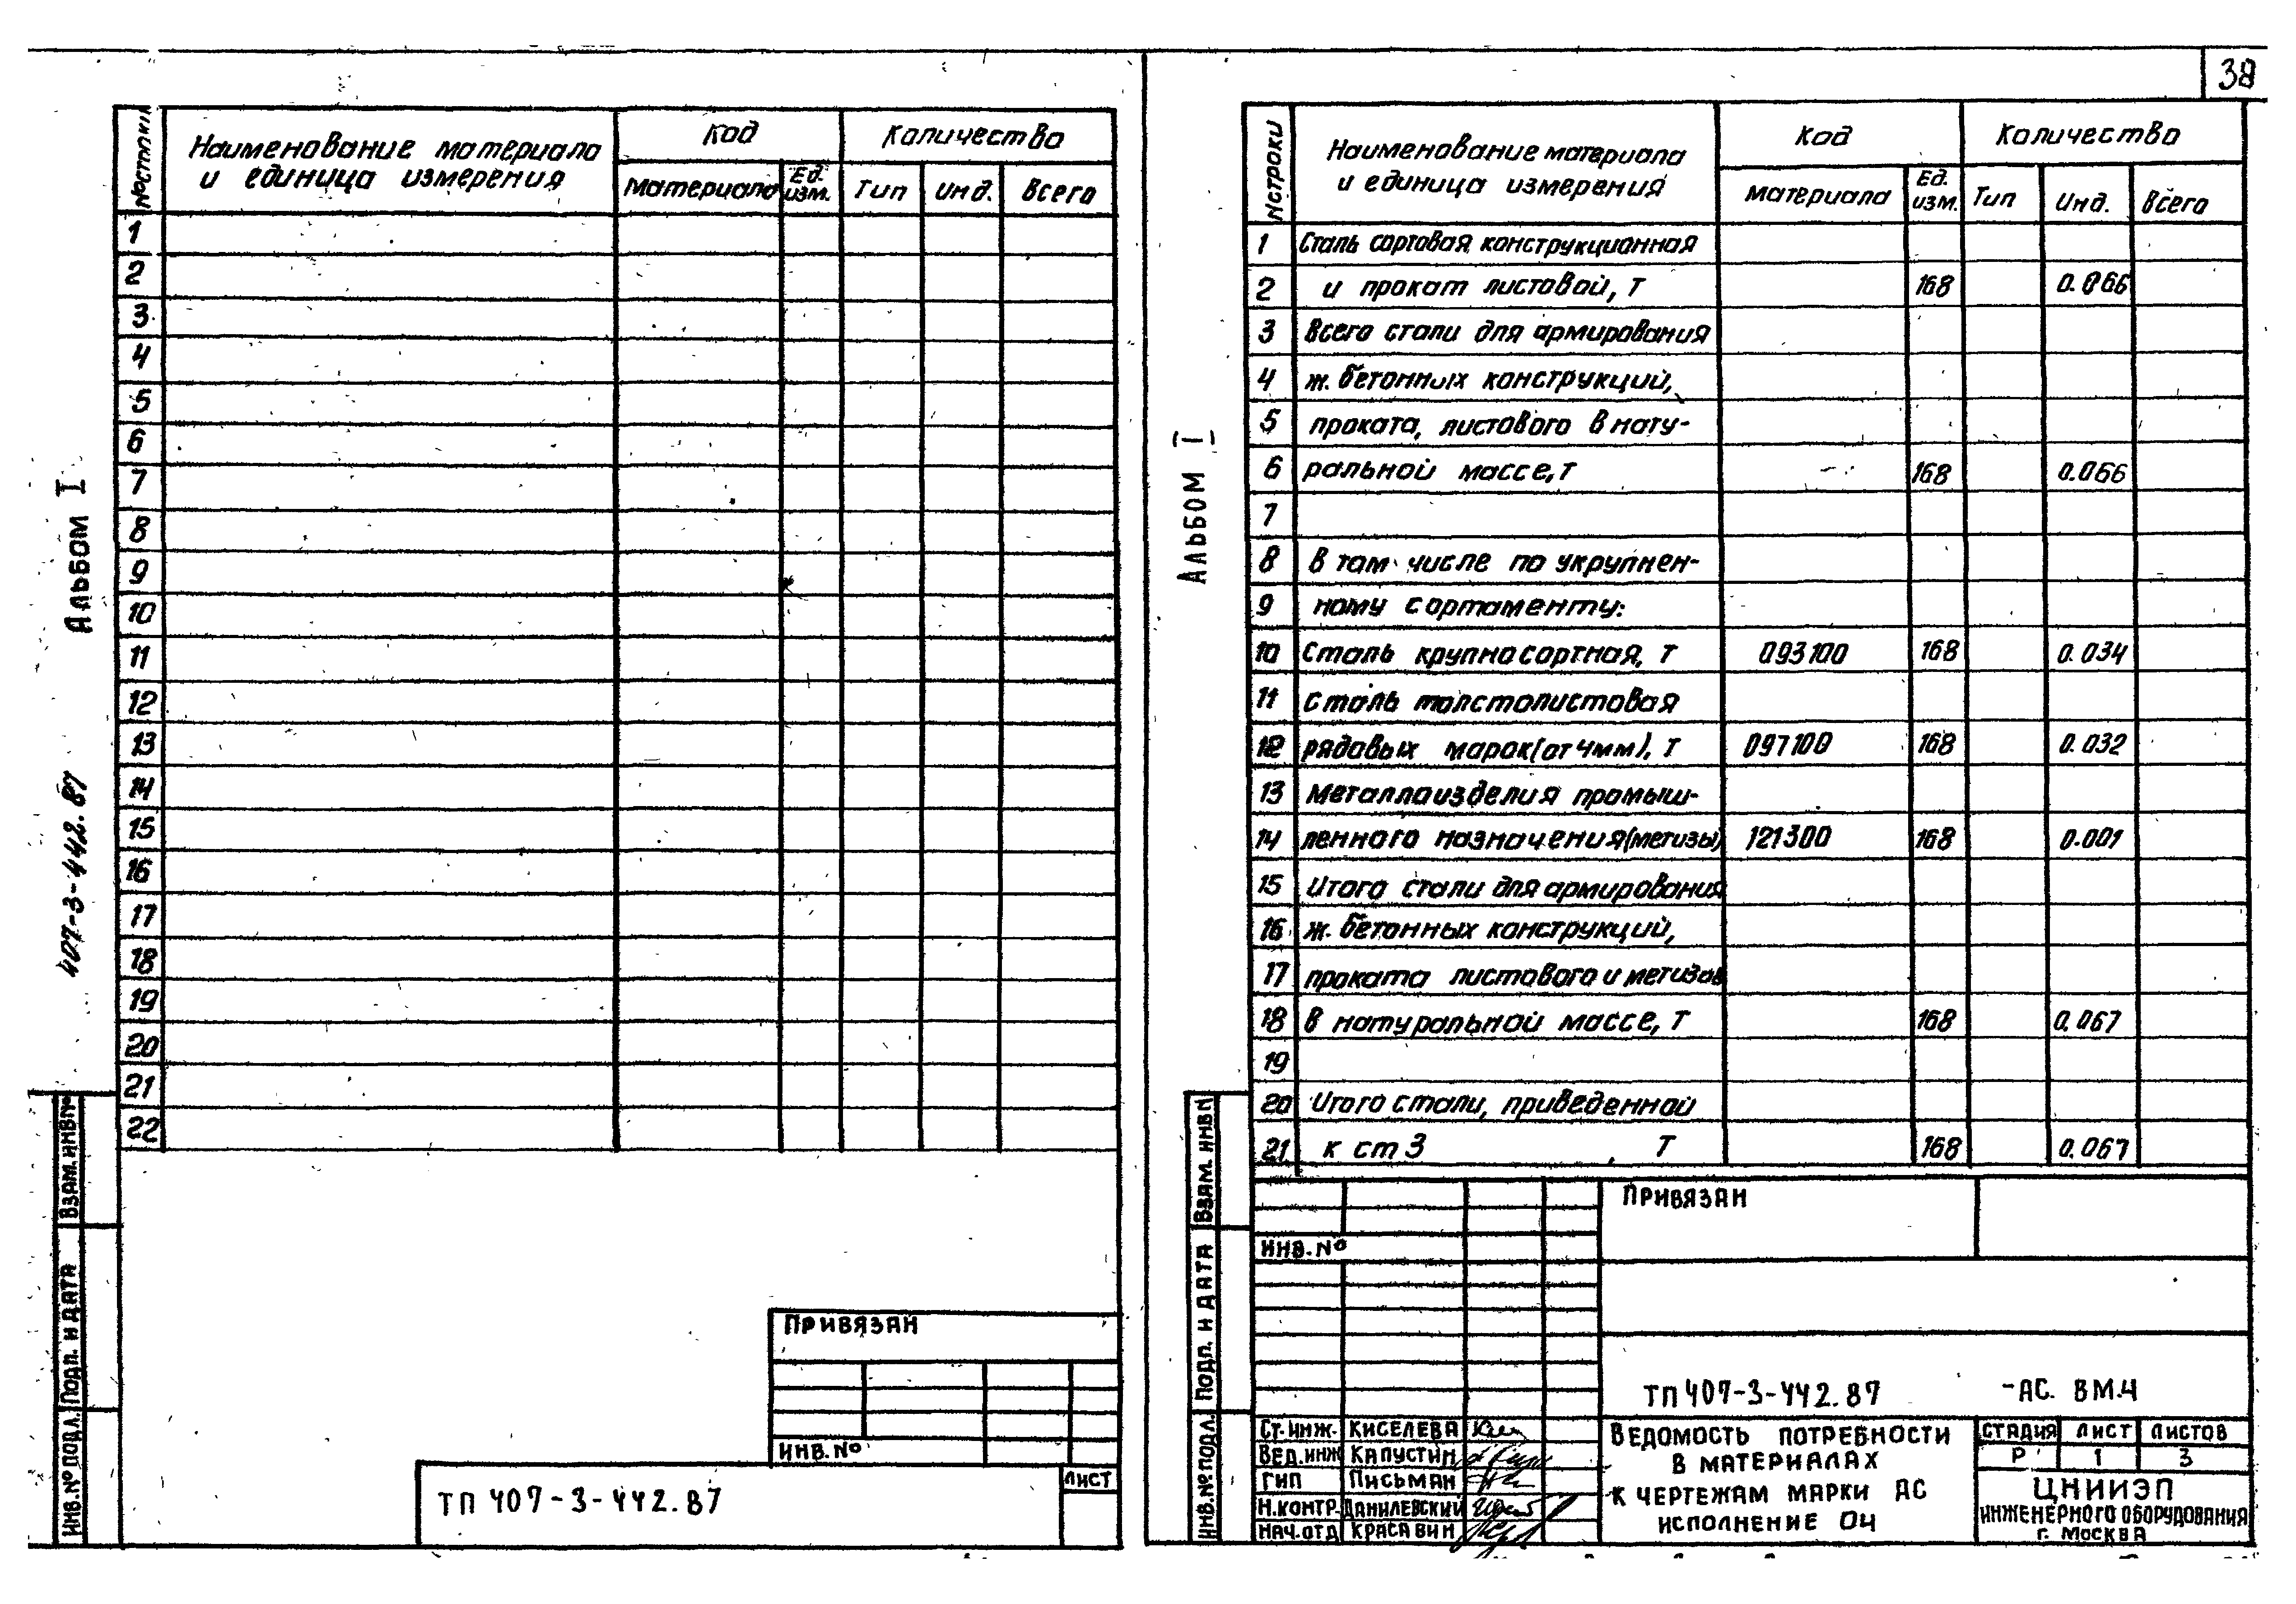 38
№ строки
Наименование материала
и единица измерения
Код
Количество
материала
Ед. изм.
Тип
инд.
всего
1
2
3
4
5
6
7
8
9
10
11
12
13
14
15
16
17
18
19
20
21
22
Альбом I
407-3-442.87
Взам. инв №
Подп. и дата
Инв. № подл.
Привязан
Инв. №
Лист
ТП 407-3-442.87
N строки
Наименование материала
и единица измерения
Код
Количество
материала
Ед. изм.
Тип
Инд.
всего
1 Сталь сортовая конструкционная
2 и прокат листовой, т 168 0.066
3 Всего стали для армирования
4 ж. бетонных конструкций,
5 проката, листового в нату-
6 ральной массе, т 168 0.066
7
8 в том числе по укрупнен-
9 ному сортаменту:
10 Сталь крупносортная, т 093100 168 0.034
11 Сталь толстолистовая
12 рядовых марок (от 4мм), т 097100 168 0.032
13 Металлоизделия промыш-
14 ленного назначения (метизы) 121300 168 0.001
15 Итого стали для армирования
16 ж. бетонных конструкций,
17 проката листового и метизов
18 в натуральной массе, т 168 0.067
19
20 Итого стали, приведенной
21 к ст 3 , т 168 0.067
Альбом I
Взам. инв N
Подп. и дата
Инв. № подл.
Привязан
Инв. №
ТП 407-3-442.87 -АС. ВМ.4
Ст. инж. Киселева
Вед. инж Капустин
ГИП Письман
Н.контр. Данилевский
Нач. отд Красавин
Ведомость потребности
в материалах
к чертежам марки АС
исполнение 04
Стадия Лист Листов
Р 1 3
ЦНИИЭП
инженерного оборудования
г. Москва